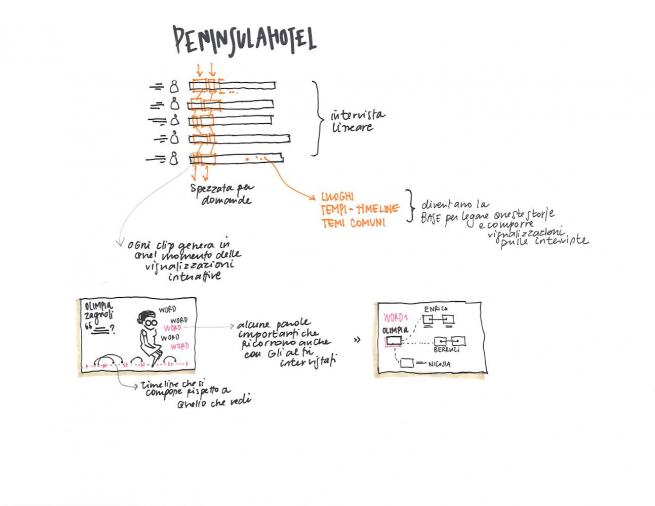 PENINSULAHOTEL
intervista
lineare
Spezzata per
domande
LUOGHI
TEMPI - TIMELINE
TEMI COMUNI
diventano la
BASE per legare queste storie
e comporre
visualizzazioni
sulle interviste
OGNI clip genera in
quel momento delle
visualizzazioni
interattive
OLIMPIA
zagnoli
?
WORD
WORD
WORD
WORD
WORD
alcune parole
importanti che
ricorrono anche
con gli altri
intervistati
»
WORD 1
OLIMPIA
ENRICA
NICOLA
timeline che si
compone rispetto a
quello che vedi